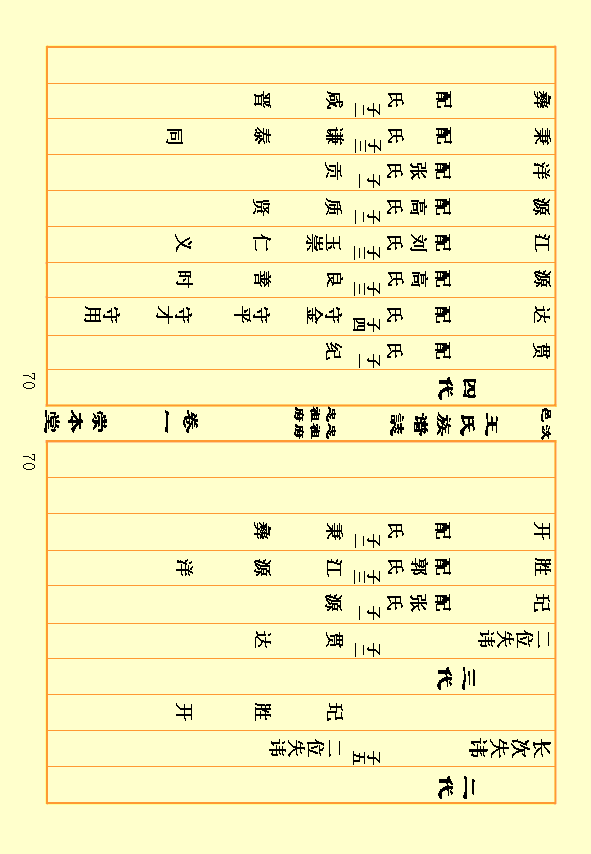 二代
长次失讳 子五 二位失讳
玘 胜 开
三代
二位失讳 子二 贯 达
玘 配张氏 子一 源
胜 配郭氏 子三 江 源 洋
开 配 氏 子二 秉 彝
70
汶邑 王氏族谱誌 卷一 崇本堂
70
四代
贯 配 氏 子一 纪
达 配 氏 子四 守金 守平 守才 守用
源 配高氏 子三 良 善 时
江 配刘氏 子三 玉崇 仁 义
源 配高氏 子二 质 贤
洋 配张氏 子一 贡
秉 配 氏 子三 谦 泰 同
彝 配 氏 子二 咸 晋